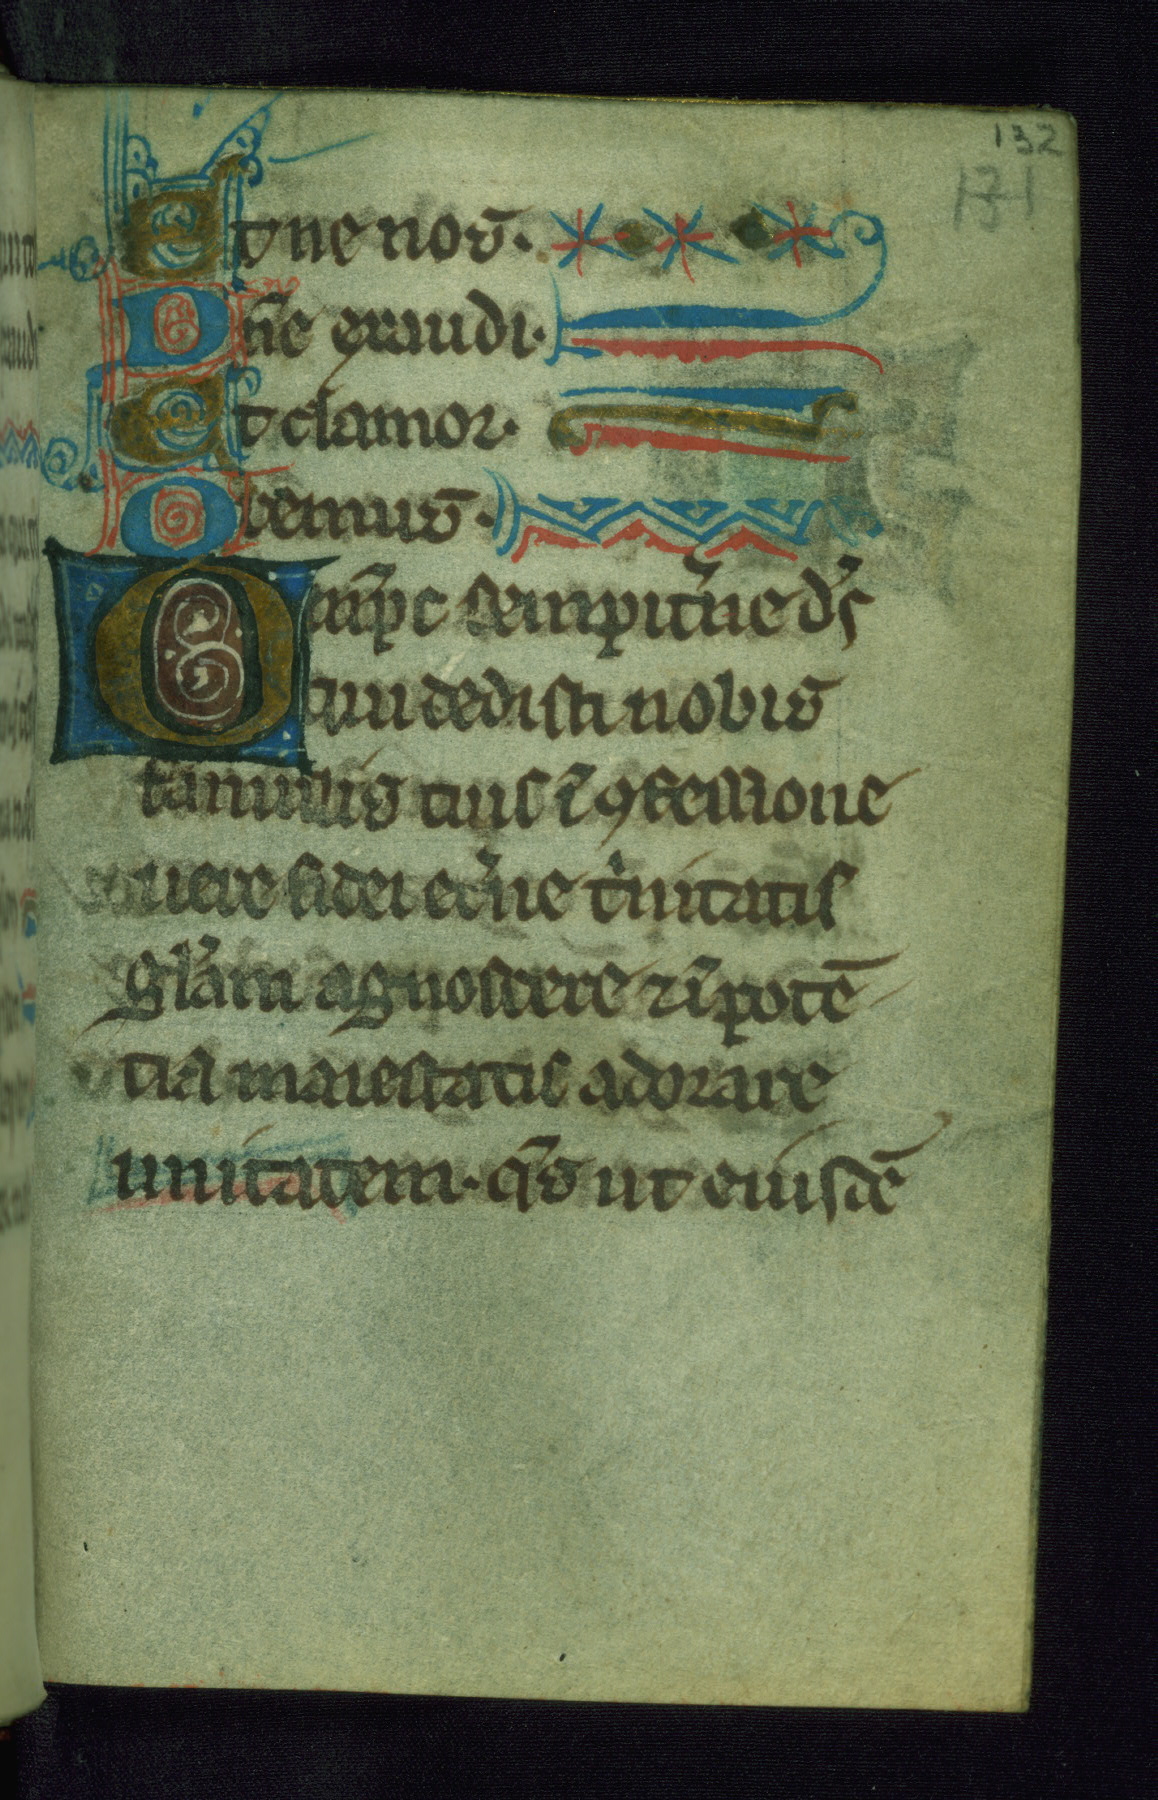 132
131
Et ne nos.
Dñe exaudi.
Et clamor.
Oremus.
Omp̄s sempit̾ne ds̄
qui dedisti nobis
famulis tuis ī ꝯfessione
uere fidei et̾ne tͥnitatis
gl̄am agnoscere ⁊ ī potē
tia maiestatis adorare
unitatem. qs̄ ut eiusdē